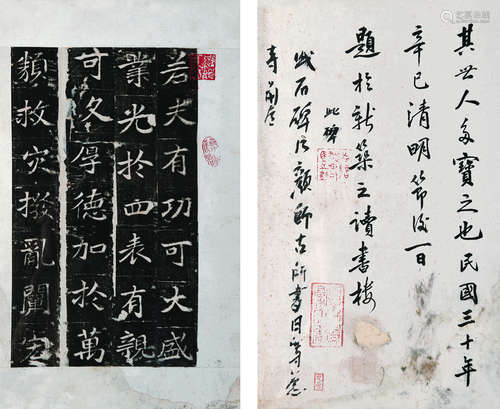 若夫有功可大盛
業光於四表有親
可久厚德加於萬
類救灾撥亂闡
其世人多寶之也民國三十年
辛巳清明節後一日
題於新築之讀書樓
此碑
石碑係顏師古所書